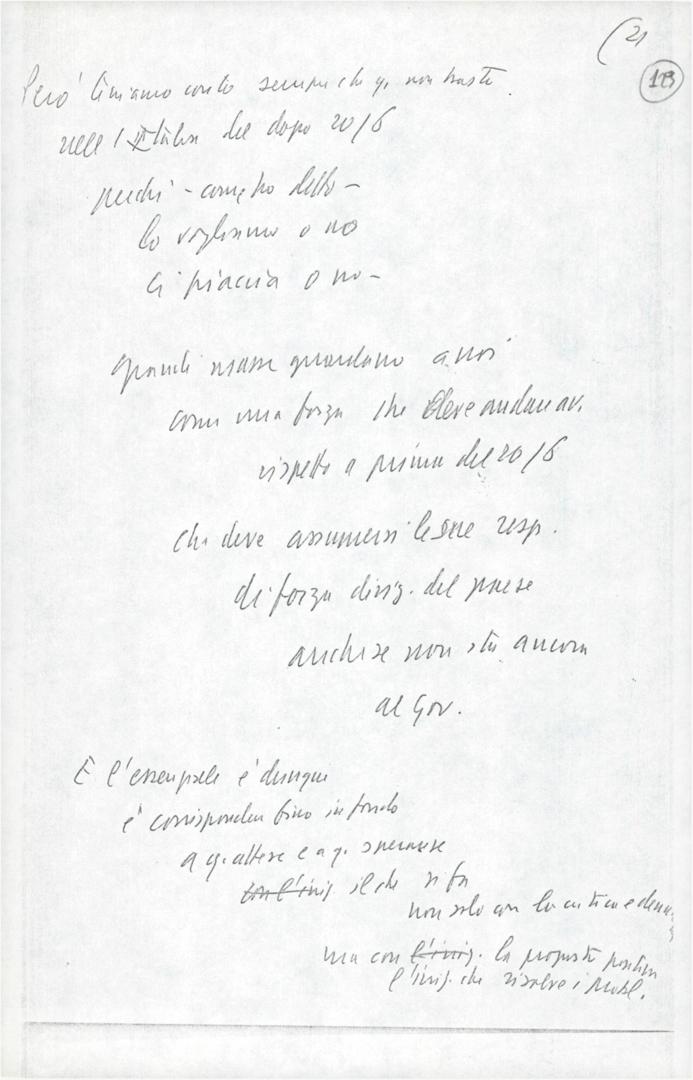 (21
113
Però teniamo conto sempre che q. non basta
nell'Italia del dopo 20/6
perché - come ho detto -
lo vogliamo o no
ci piaccia o no -
grandi masse guardano a noi
come una forza che deve andare av.
rispetto a prima del 20/6
che deve assumersi le sue resp.
di forza dirig. del paese
anche se non sta ancora
al Gov.
E l'essenziale è dunque
è corrispondere fino in fondo
a q. attese e a q. speranze
con l'iniz. il che si fa
non solo con la critica e
ma con l'iniz. la proposta positiva
l'iniz. che risolve i probl.